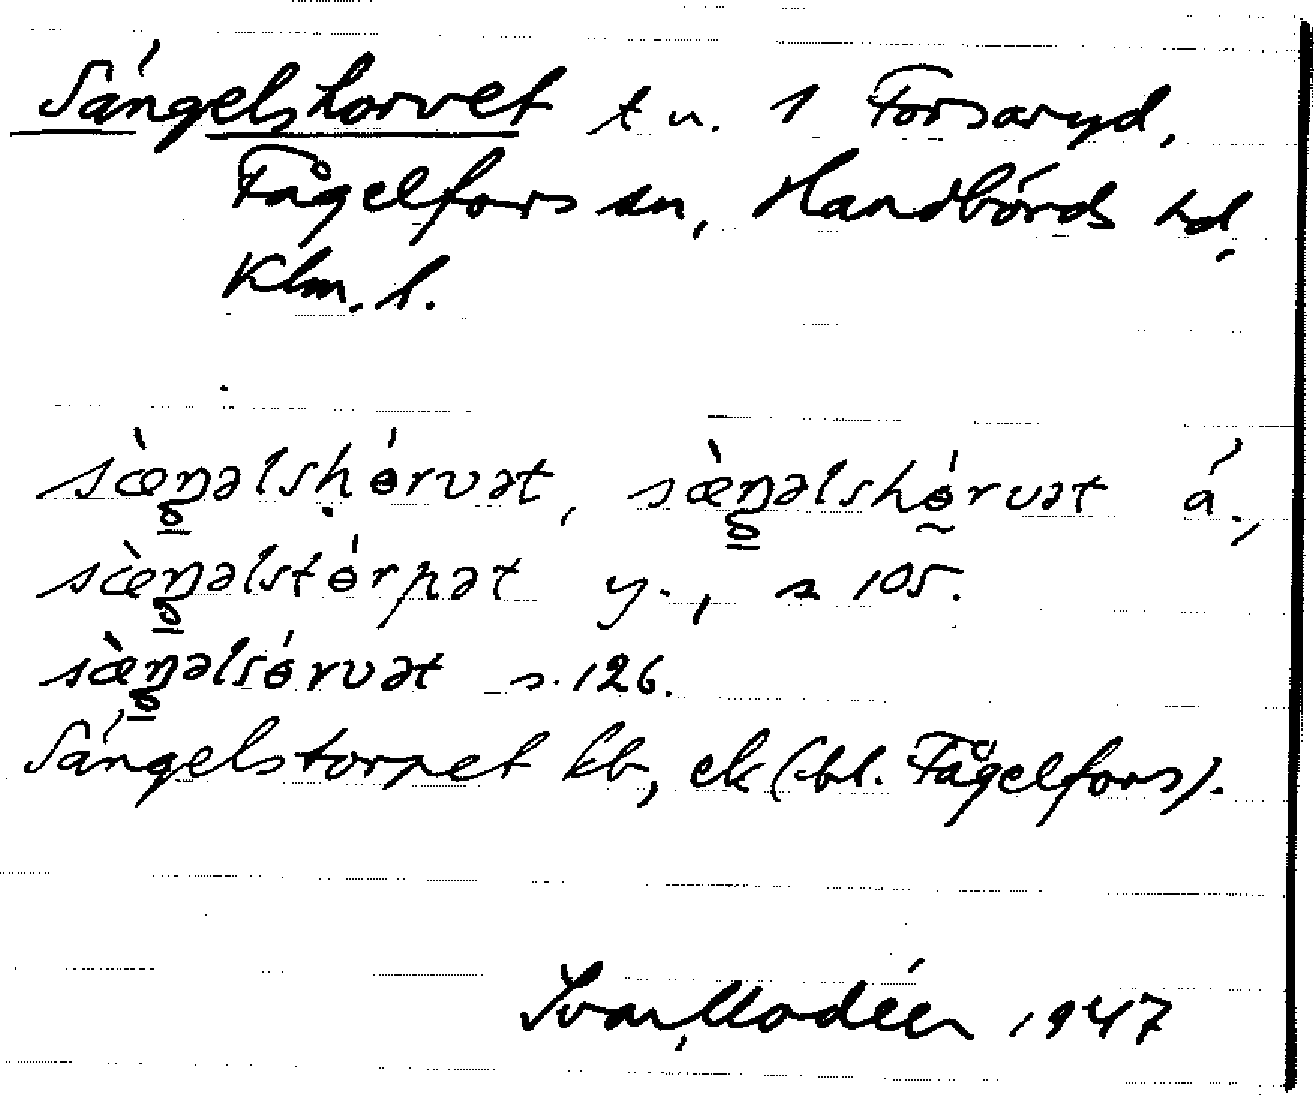 Sängelshorvet t u. 1 Forsaryd,
Fågelfors sn, Handbörds hd,
Klm. l.
sæ̀ŋəlshɵ́rvət, sæ̀ŋəlshɵ́rvət ä.,
sæ̀ŋəlstɵ́rpət y., s 105.
sæ̀ŋəlsɵ́rvət s. 126.
Sängelstorpet kb, ek (bl. Fågelfors).
Ivar Modéer 1947